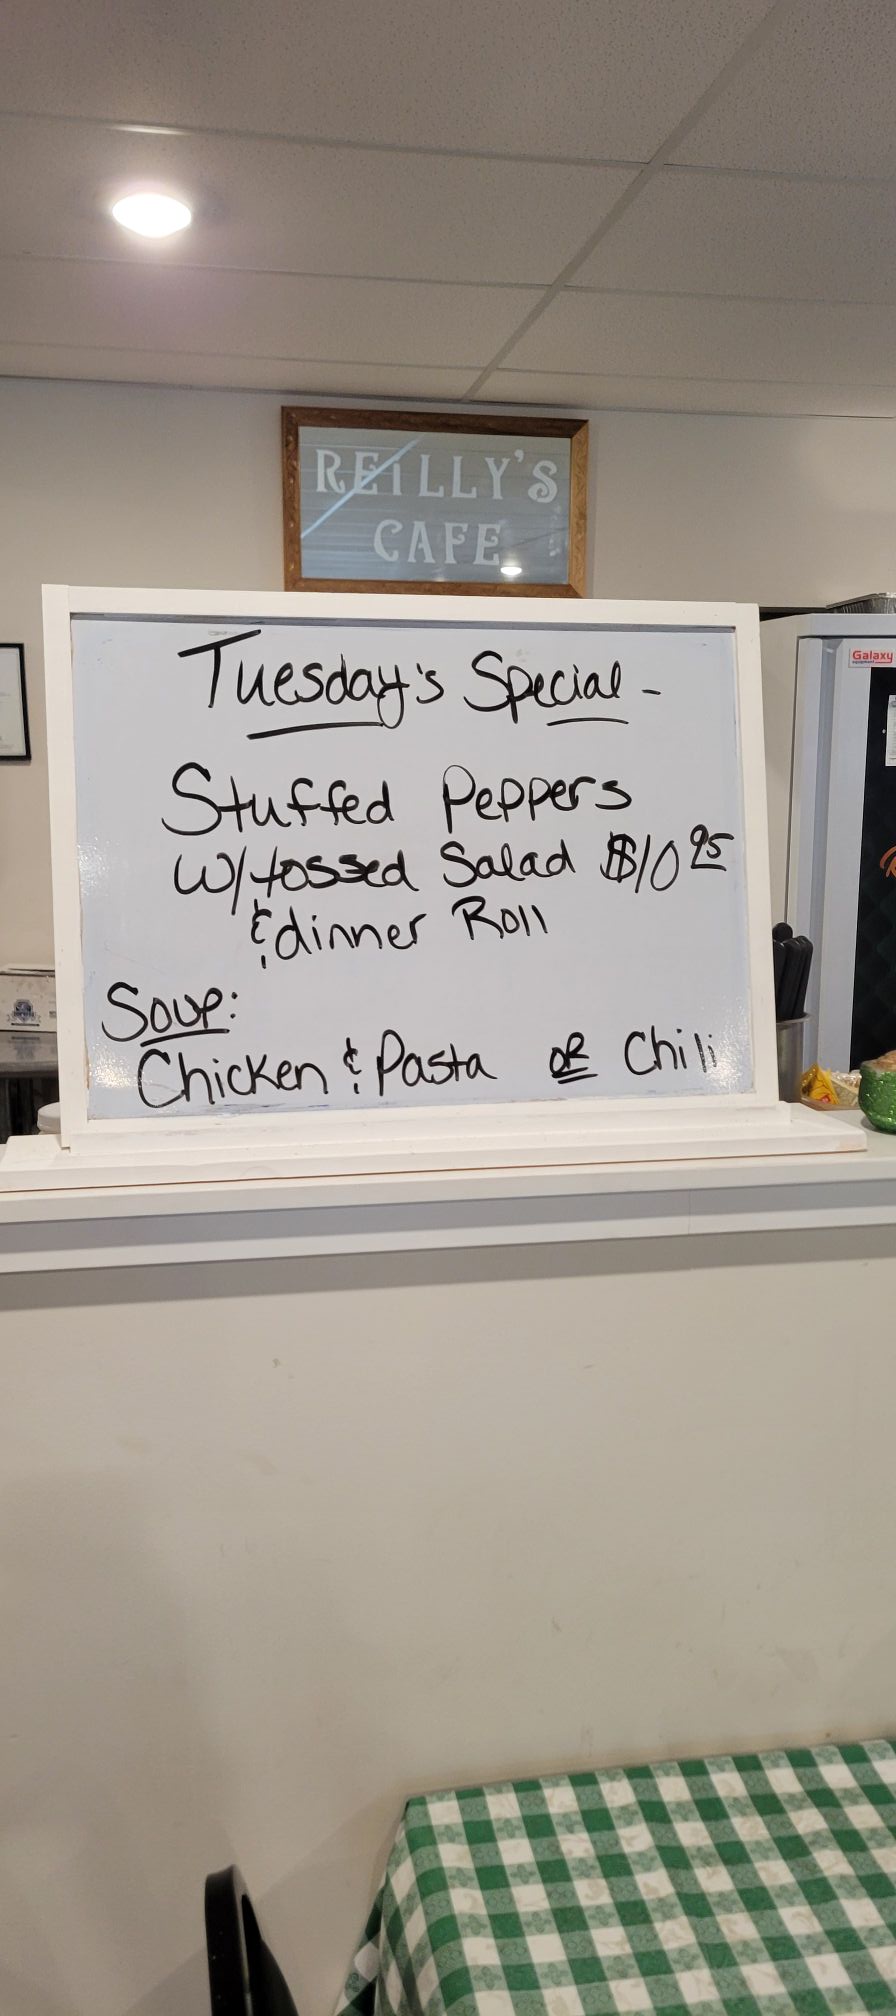 REILLY'S
CAFE
Tuesday's Special -
Stuffed Peppers
w/tossed Salad $10 95
& dinner Roll
Soup:
Chicken & Pasta OR Chili
Galaxy
equipment